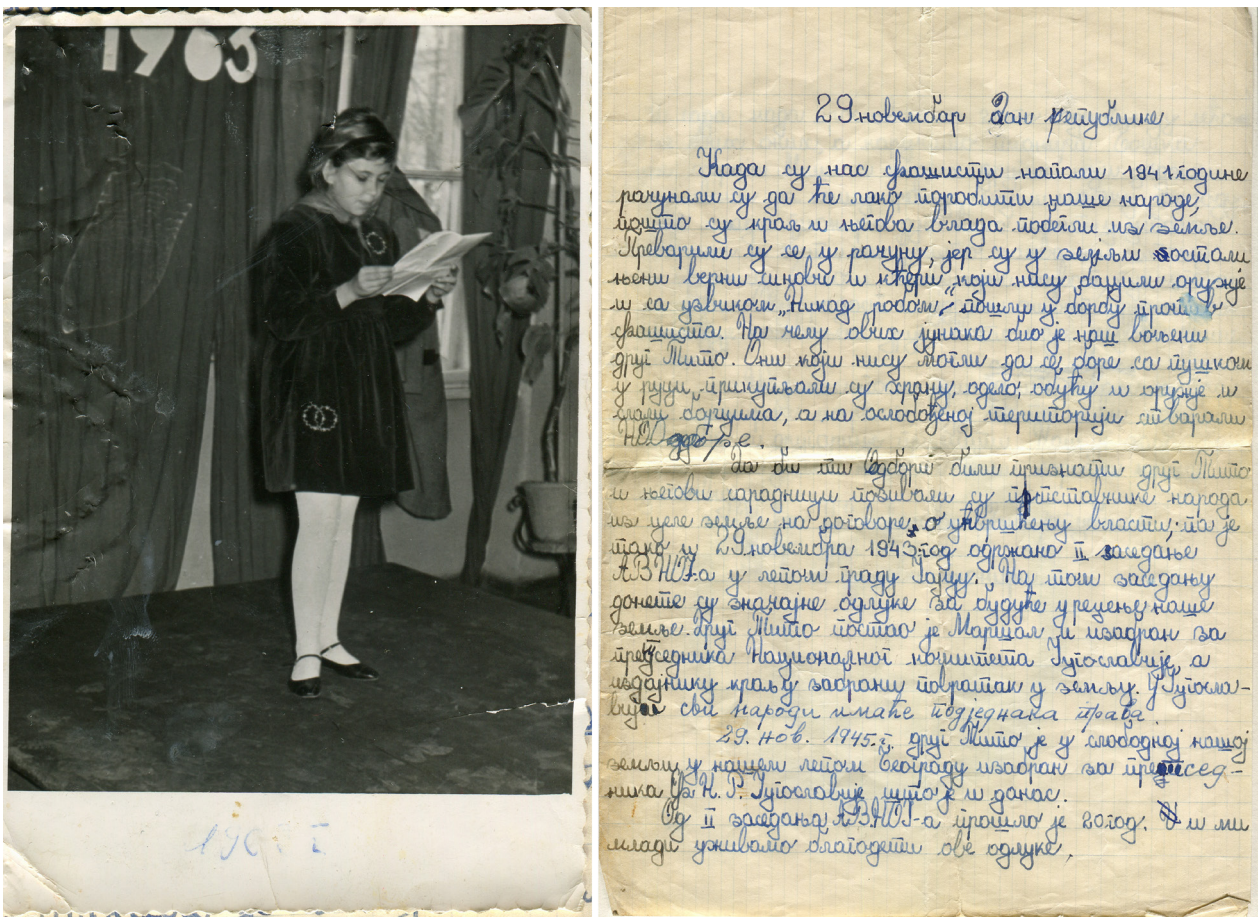 1963
29 новембар Дан републике
Када су нас фашисти напали 1941 године
рачунали су да ће лако поробити наше народе,
пошто су краљ и његова влада побегли из земље.
Преварили су се у рачуну, јер су у земљи остали
њени верни синови и кћери који нису бацили оружје
и са узвиком „Никад робом," пошли у борбу против
фашиста. На челу ових јунака био је наш вољени
друг Тито. Они који нису могли да се боре са пушком
у руци, прикупљали су храну, одело, обућу и оружје и
слали борцима, а на ослобођеној територији стварали
НО одборе.
Да би ти Одбори били признати друг Тито
и његови сарадници позивали су претставнике народа
из целе земље на договоре о учвршћењу власти, па је
тако и 29 новембра 1943 год одржано II заседање
АВНОЈ-а у лепом граду Јајцу. На том заседању
донете су значајне одлуке за будуће уређење наше
земље. Друг Тито постао је Маршал и изабран за
председника Националног комитета Југославије, а
издајнику краљу забрани повратак у земљу. У Југосла-
вији сви народи имаће подједнака права.
29. нов. 1945.г. друг Тито је у слободној нашој
земљи у нашем лепом Београду изабран за претсед-
ника Ф.Н.Р. Југославије што је и данас.
Од II заседања АВНОЈ-а прошло је 20 год. и ми
млади уживамо благодети ове одлуке.